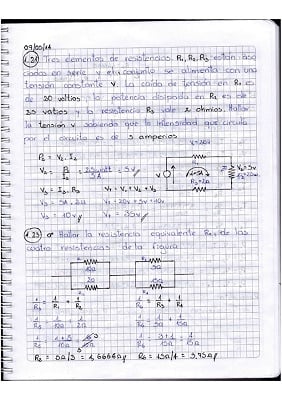 09/00/14
1.21 Tres elementos de resistencias R₁, R₂, R₃ están aso
ciada en serie y el conjunto se alimenta con una
tensión constante V. La caída de tensión en R₁ es
de 20 voltios; la potencia disipada en R₂ es de
25 vatios y la resistencia R₃ vale 2 ohmios. Hallar
la tensión V sabiendo que la intensidad que circula
por el circuito es de 5 amperios.
P₂ = V₂ · I₂
V₂ = P₂/I = 25watt/5A = 5V
V₃ = I₃ · R₃
V₃ = 5A · 2Ω
V₃ = 10V
Vₜ = V₁ + V₂ + V₃
Vₜ = 20V + 5V + 10V
Vₜ = 35V
V₁=20V
V
I=5A
R₃=2Ω
1.23 Hallar la resistencia equivalente de las
cuatro resistencias de la figura
10Ω
5Ω
5Ω
15Ω
1/Rₐ = 1/R₁ + 1/R₂
Rₐ = 5Ω/3 = 1,6666Ω
1/R₆ = 1/R₃ + 1/R₄
1/R₆ = 1/5Ω + 1/15Ω
R₆ = 15Ω/4 = 3,75Ω